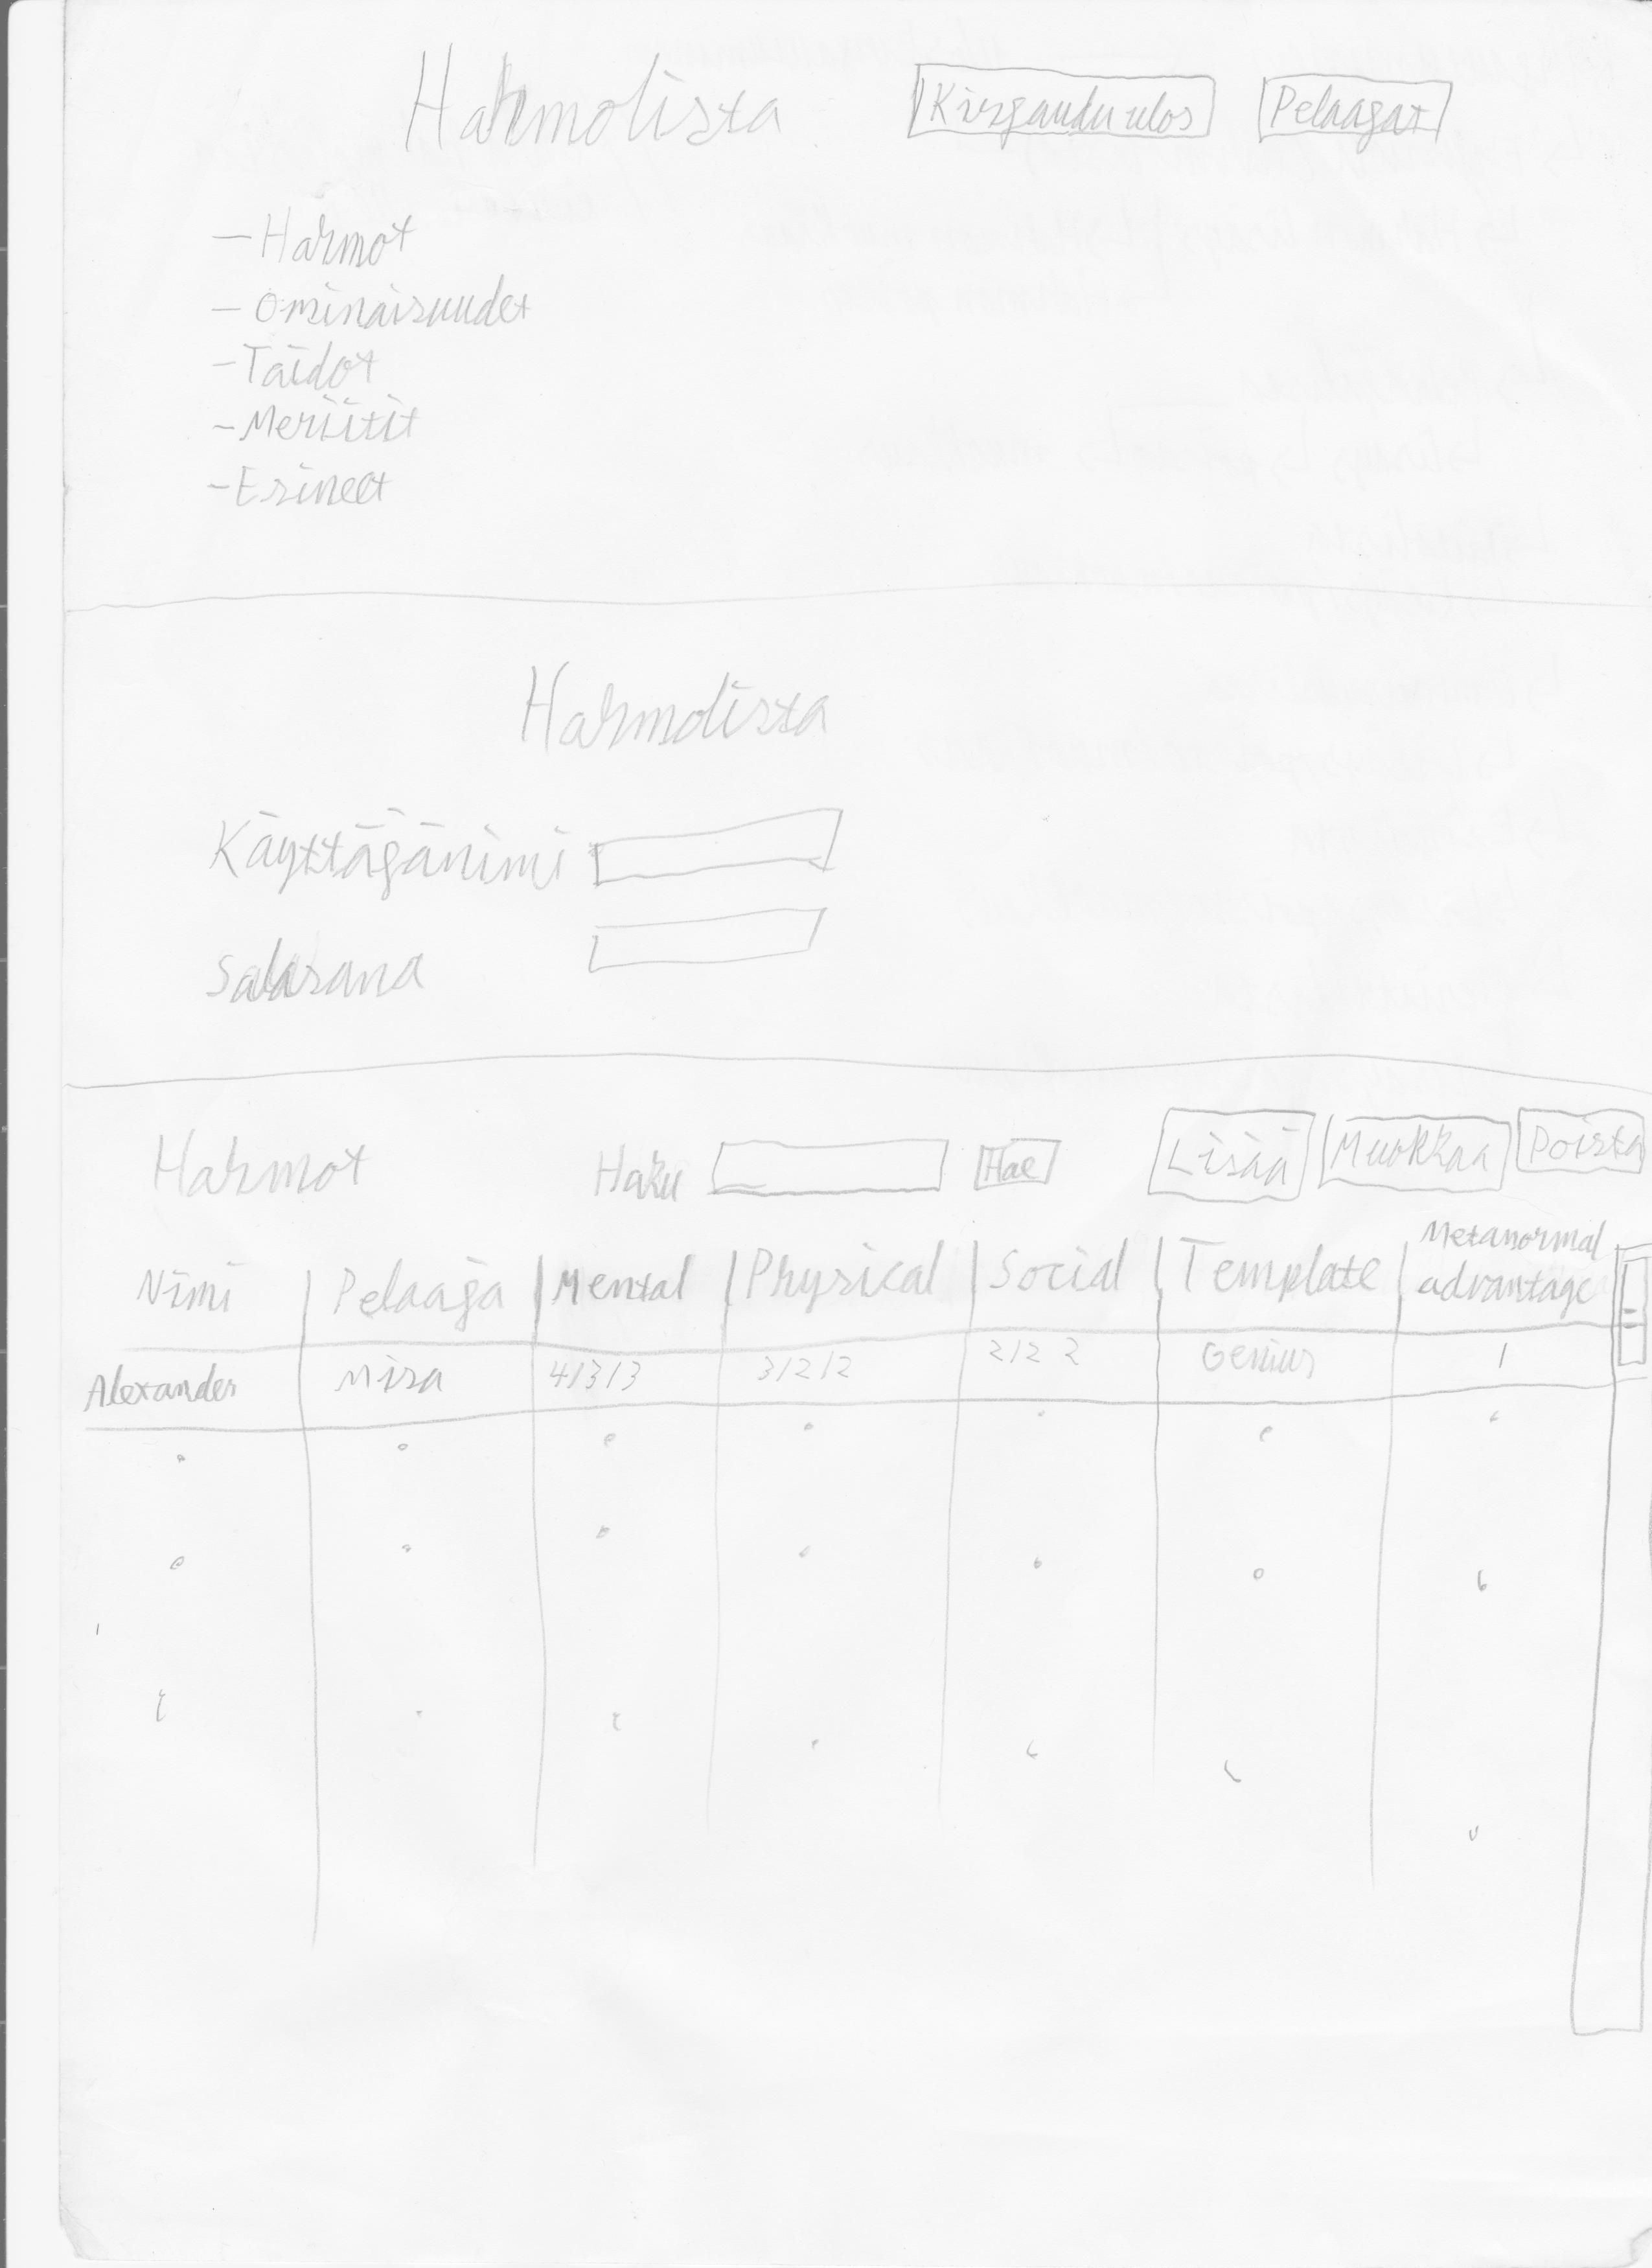 Hahmolista Kirjaudu ulos Pelaajat
- Hahmot
- Ominaisuudet
- Taidot
- Meriitit
- Esineet
Hahmolista
Käyttäjänimi
Salasana
Hahmot Haku Hae Lisää Muokkaa Poista
Nimi Pelaaja Mental Physical Social Template Metanormal advantage
Alexander Misa 4/3/3 3/2/2 2/2 2 Genius 1